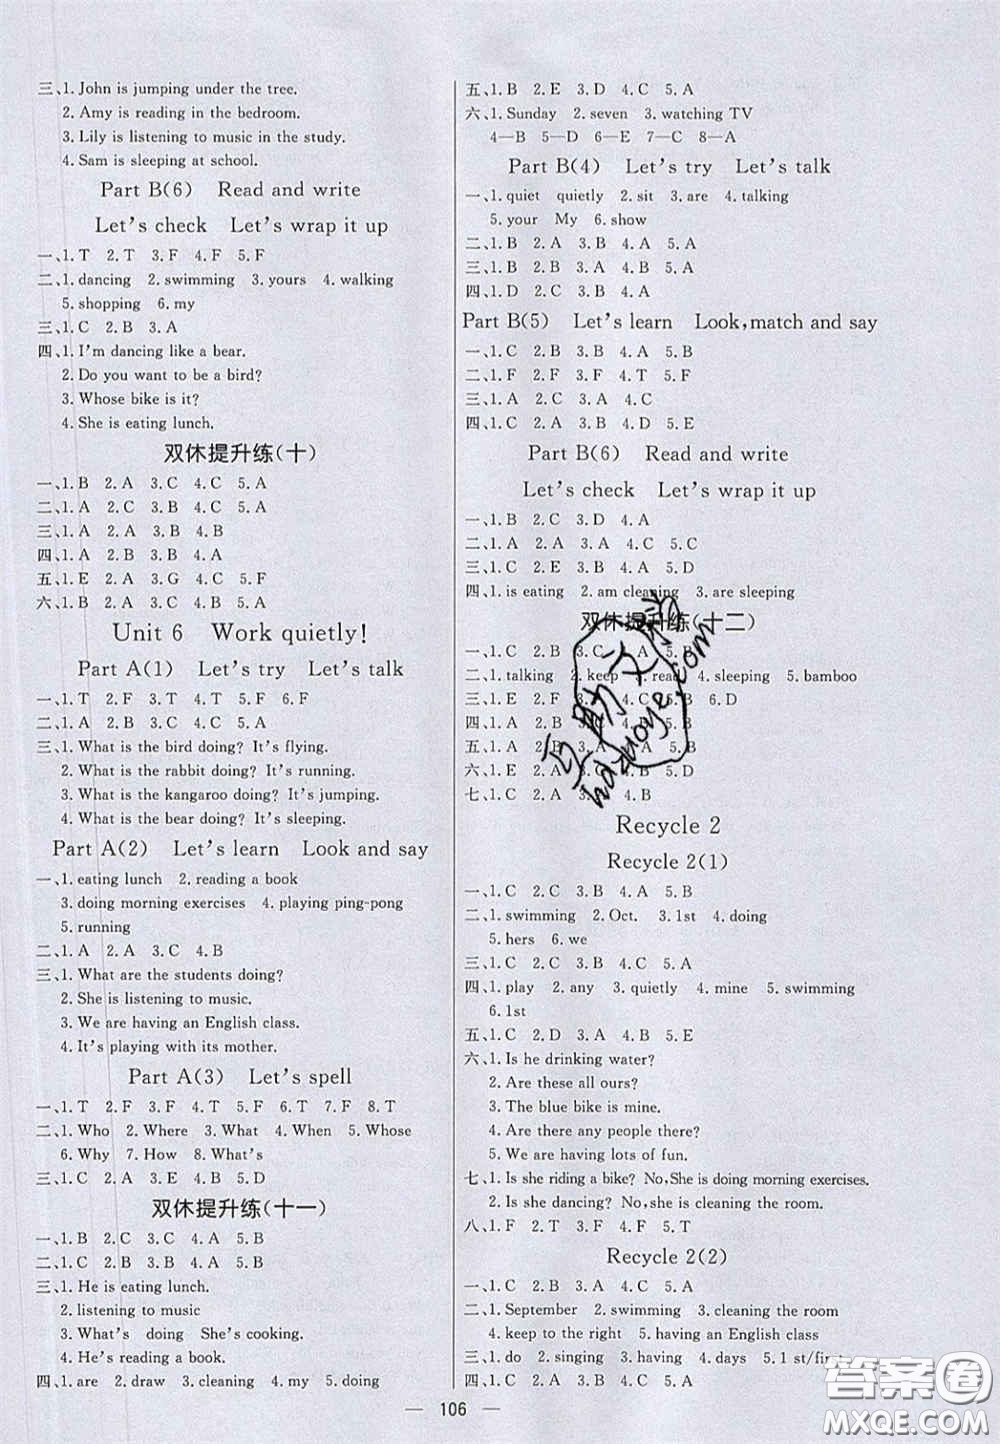 三、1. John is jumping under the tree.
2. Amy is reading in the bedroom.
3. Lily is listening to music in the study.
4. Sam is sleeping at school.
Part B(6) Read and write
Let's check Let's wrap it up
一、1. T 2. T 3. F 4. F 5. F
二、1. dancing 2. swimming 3. yours 4. walking
5. shopping 6. my
三、1. C 2. B 3. A
四、1. I'm dancing like a bear.
2. Do you want to be a bird?
3. Whose bike is it?
4. She is eating lunch.
双休提升练(十)
一、1. B 2. A 3. C 4. C 5. A
二、1. A 2. C 3. B 4. C 5. A
三、1. A 2. A 3. B 4. B
四、1. A 2. B 3. B 4. A
五、1. E 2. A 3. G 4. C 5. F
六、1. B 2. A 3. B 4. A 5. A
Unit 6 Work quietly!
Part A(1) Let's try Let's talk
一、1. T 2. F 3. F 4. T 5. F 6. F
二、1. A 2. A 3. C 4. B 5. A
三、1. What is the bird doing? It's flying.
2. What is the rabbit doing? It's running.
3. What is the kangaroo doing? It's jumping.
4. What is the bear doing? It's sleeping.
Part A(2) Let's learn Look and say
一、1. eating lunch 2. reading a book
3. doing morning exercises 4. playing ping-pong
5. running
二、1. A 2. A 3. C 4. B
三、1. What are the students doing?
2. She is listening to music.
3. We are having an English class.
4. It's playing with its mother.
Part A(3) Let's spell
一、1. T 2. F 3. F 4. T 5. F 6. T 7. F 8. T
二、1. Who 2. Where 3. What 4. When 5. Whose
6. Why 7. How 8. What's
三、1. C 2. A 3. E 4. B 5. D
双休提升练(十一)
一、1. B 2. C 3. C 4. B 5. A
二、1. C 2. B 3. B 4. A 5. A
三、1. He is eating lunch.
2. listening to music
3. What's doing She's cooking.
4. He's reading a book.
四、1. are 2. draw 3. cleaning 4. my 5. doing
五、1. B 2. E 3. D 4. C 5. A
六、1. Sunday 2. seven 3. watching TV
4—B 5—D 6—E 7—C 8—A
Part B(4) Let's try Let's talk
一、1. quiet quietly 2. sit 3. are 4. talking
5. your My 6. show
二、1. B 2. A 3. B 4. A 5. A
三、1. B 2. B 3. A 4. B 5. A
四、1. D 2. C 3. B 4. A
Part B(5) Let's learn Look,match and say
一、1. C 2. B 3. B 4. A 5. B
二、1. F 2. F 3. F 4. T 5. F
三、1. A 2. C 3. A 4. C 5. A
四、1. C 2. A 3. B 4. D 5. E
Part B(6) Read and write
Let's check Let's wrap it up
一、1. B 2. C 3. D 4. A
二、1. A 2. A 3. A 4. C 5. C
三、1. C 2. E 3. B 4. A 5. D
四、1. is eating 2. am cleaning 3. are sleeping
双休提升练(十二)
一、1. C 2. B 3. C A 5. B
二、1. talking 2. keep 3. read 4. sleeping 5. bamboo
三、1. E 2. F C 5. B 6. D
四、1. A 2. B 5. B
五、1. A 2. B 3. A A 5. B
六、1. E 2. A B 5. D
七、1. C 2. A 3. 4. B
Recycle 2
Recycle 2(1)
一、1. C 2. C 3. B 4. A 5. B
二、1. swimming 2. Oct. 3. 1st 4. doing
5. hers 6. we
三、1. C 2. C 3. B 4. C 5. A
四、1. play 2. any 3. quietly 4. mine 5. swimming
6. 1st
五、1. C 2. D 3. A 4. B 5. E
六、1. Is he drinking water?
2. Are these all ours?
3. The blue bike is mine.
4. Are there any people there?
5. We are having lots of fun.
七、1. Is she riding a bike? No,She is doing morning exercises.
2. Is she dancing? No,she is cleaning the room.
八、1. F 2. T 3. F 4. F 5. T
Recycle 2(2)
一、1. C 2. B 3. A 4. C 5. A
二、1. September 2. swimming 3. cleaning the room
4. keep to the right 5. having an English class
三、1. do 2. singing 3. having 4. days 5. 1 st/first
四、1. C 2. B 3. C 4. A 5. A
— 106 —
答案圈
MXQE.COM